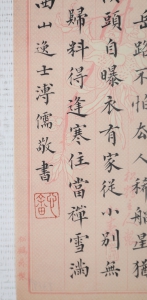 岳路不怕去人稀船星猶
頭自曝衣有家從小別無
歸料得逢寒住當禪雪滿
西山逸士溥儒敬書
心畬